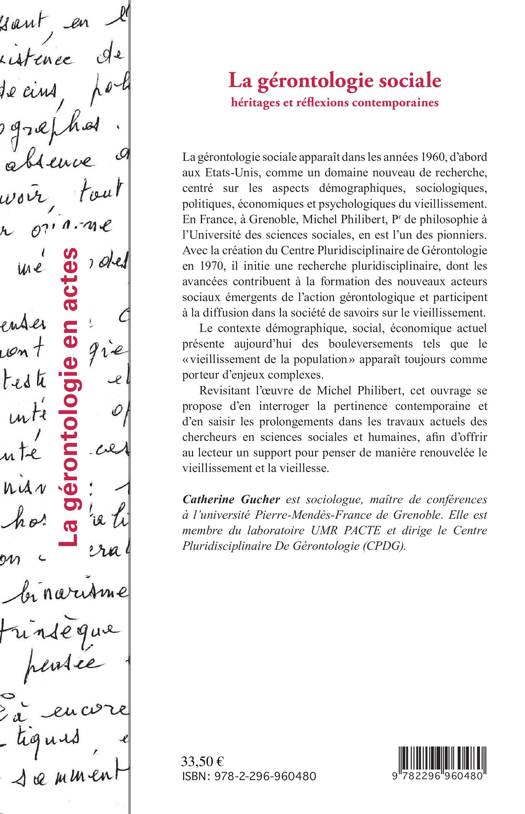 sant, en l
existence de
decins, poli
ographes.
absence a
voir, tout
r
mé
rodes
enser
c
ont
gie
teste
el
unté
of
nté
ces
nisn
hos
on
eral
binarisme
trinsèque
pensée
à encore
tiques, e
samment
La gérontologie en actes
La gérontologie sociale
héritages et réflexions contemporaines
La gérontologie sociale apparaît dans les années 1960, d’abord
aux Etats-Unis, comme un domaine nouveau de recherche,
centré sur les aspects démographiques, sociologiques,
politiques, économiques et psychologiques du vieillissement.
En France, à Grenoble, Michel Philibert, Pr de philosophie à
l’Université des sciences sociales, en est l’un des pionniers.
Avec la création du Centre Pluridisciplinaire de Gérontologie
en 1970, il initie une recherche pluridisciplinaire, dont les
avancées contribuent à la formation des nouveaux acteurs
sociaux émergents de l’action gérontologique et participent
à la diffusion dans la société de savoirs sur le vieillissement.
Le contexte démographique, social, économique actuel
présente aujourd’hui des bouleversements tels que le
«vieillissement de la population» apparaît toujours comme
porteur d’enjeux complexes.
Revisitant l’œuvre de Michel Philibert, cet ouvrage se
propose d’en interroger la pertinence contemporaine et
d’en saisir les prolongements dans les travaux actuels des
chercheurs en sciences sociales et humaines, afin d’offrir
au lecteur un support pour penser de manière renouvelée le
vieillissement et la vieillesse.
Catherine Gucher est sociologue, maître de conférences
à l’université Pierre-Mendès-France de Grenoble. Elle est
membre du laboratoire UMR PACTE et dirige le Centre
Pluridisciplinaire De Gérontologie (CPDG).
33,50 €
ISBN : 978-2-296-960480
9 782296 960480